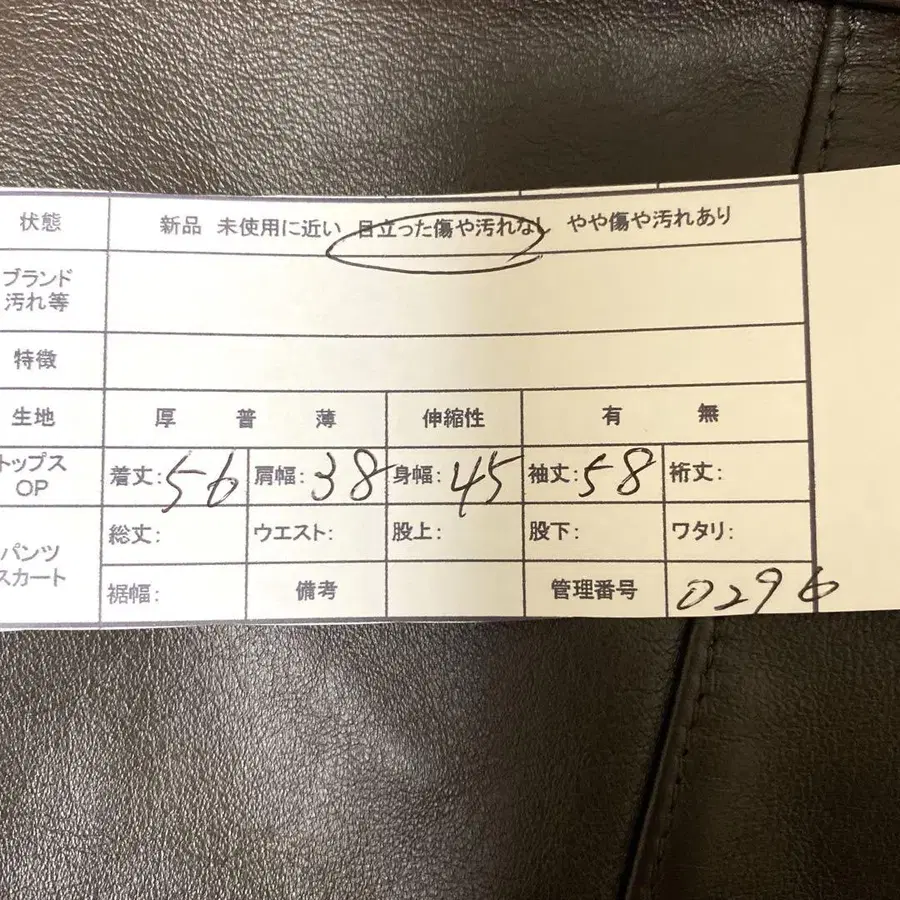 状態 新品 未使用に近い 目立った傷や汚れなし やや傷や汚れあり
ブランド
汚れ等
特徴
生地 厚 普 薄 伸縮性 有 無
トップス
OP
着丈:56 肩幅:38 身幅:45 袖丈:58 裄丈:
パンツ
スカート
総丈: ウエスト: 股上: 股下: ワタリ:
裾幅: 備考 管理番号 0296